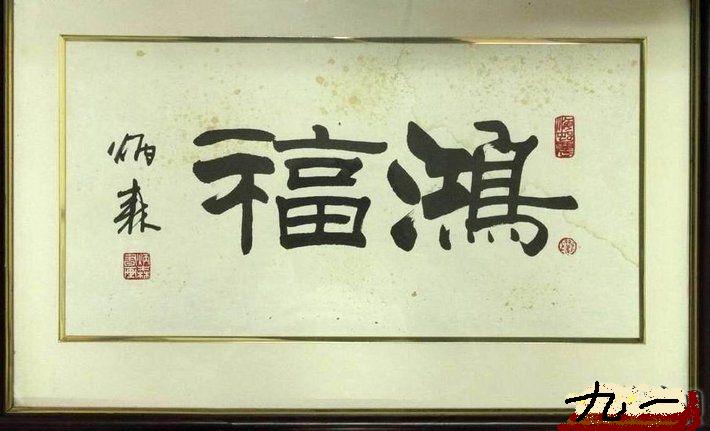 鴻福
炳森
九一